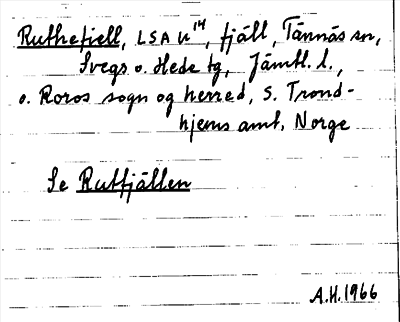 Ruthefiell, LSA U¹⁴, fjäll, Tännäs sn,
Svegs o. Hede tg, Jämtl. l.,
o. Roros sogn og herred, S. Trond-
hjems amt, Norge
Se Rutfjällen
A.H. 1966